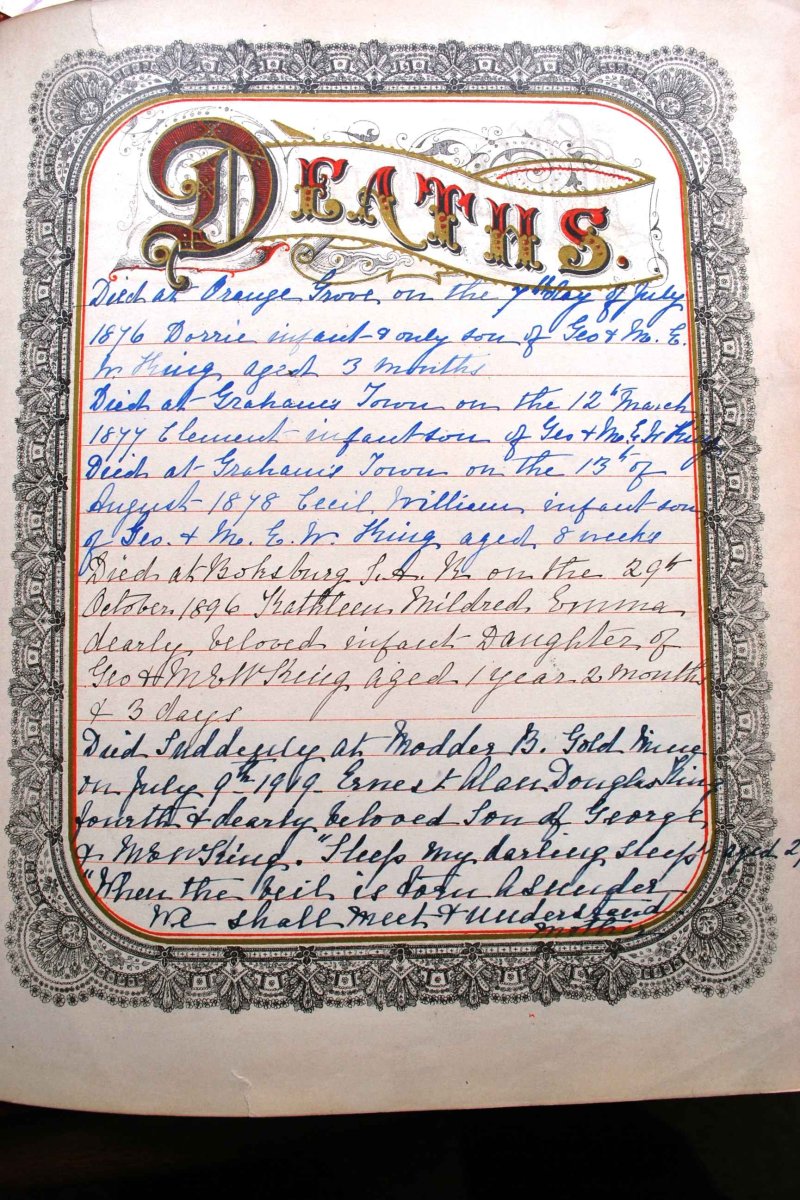 DEATHS.
Died at Orange Grove on the 7th day of July
1876 Dorrie infant & only son of Geo & M. E.
W. King aged 3 months
Died at Graham's Town on the 12th March
1877 Clement infant son of Geo & M. E. W King
Died at Graham's Town on the 13th of
August 1878 Cecil William infant son
of Geo. & M. E. W. King aged 8 weeks
Died at Boksburg S. A. R on the 29th
October 1896 Kathleen Mildred Emma
dearly beloved infant Daughter of
Geo & M E W King aged 1 year 2 months
& 3 days
Died Suddenly at Modder B. Gold Mine
on July 9th 1919 Ernest Alan Douglas King
fourth & dearly beloved Son of George
& M E W King. "Sleep my darling sleep" aged
"When the veil is torn asunder
We shall meet & understand
Mother